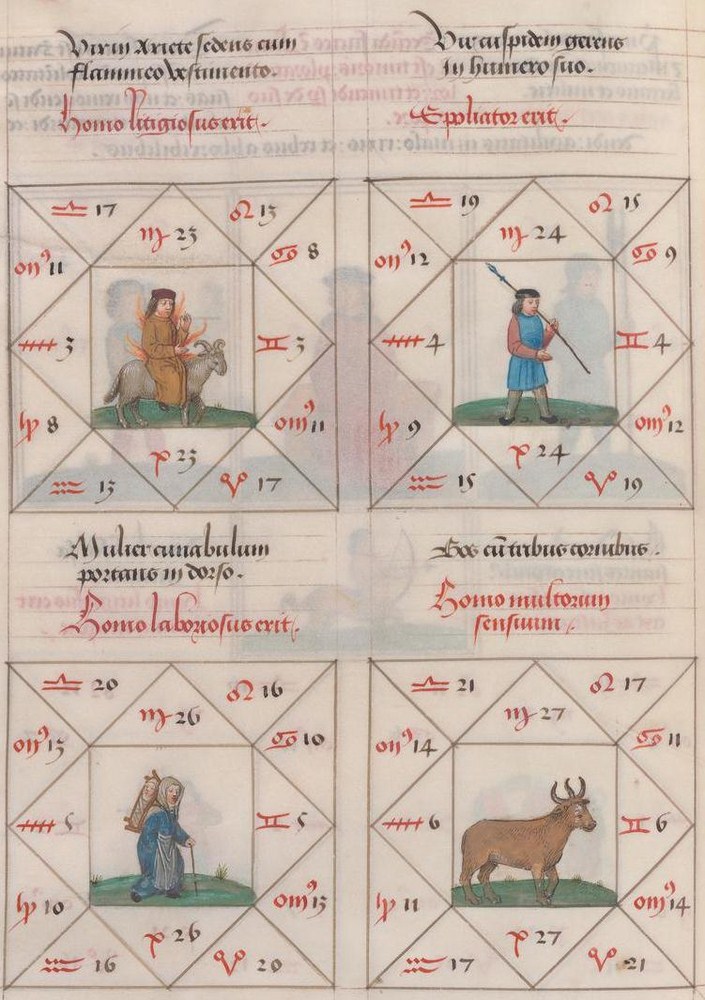 Vir in Ariete sedens cum
flammeo vestimento.
Homo litigiosus erit.
♎ 17
♍ 23
♌ 13
♋ 8
♏ 11
♐ 3
♊ 3
♑ 8
♉ 11
♒ 13
♓ 23
♈ 17
Vir cuspidem gerens
In humero suo.
Expoliator erit.
♎ 19
♍ 24
♌ 15
♋ 9
♏ 12
♐ 4
♊ 4
♑ 9
♉ 12
♒ 15
♓ 24
♈ 19
Mulier cunabulum
portans in dorso.
Homo laboriosus erit.
♎ 20
♍ 26
♌ 16
♋ 10
♏ 13
♐ 5
♊ 5
♑ 10
♉ 13
♒ 16
♓ 26
♈ 20
Bos cū tribus cornibus.
Homo multorum
sensuum.
♎ 21
♍ 27
♌ 17
♋ 11
♏ 14
♐ 6
♊ 6
♑ 11
♉ 14
♒ 17
♓ 27
♈ 21